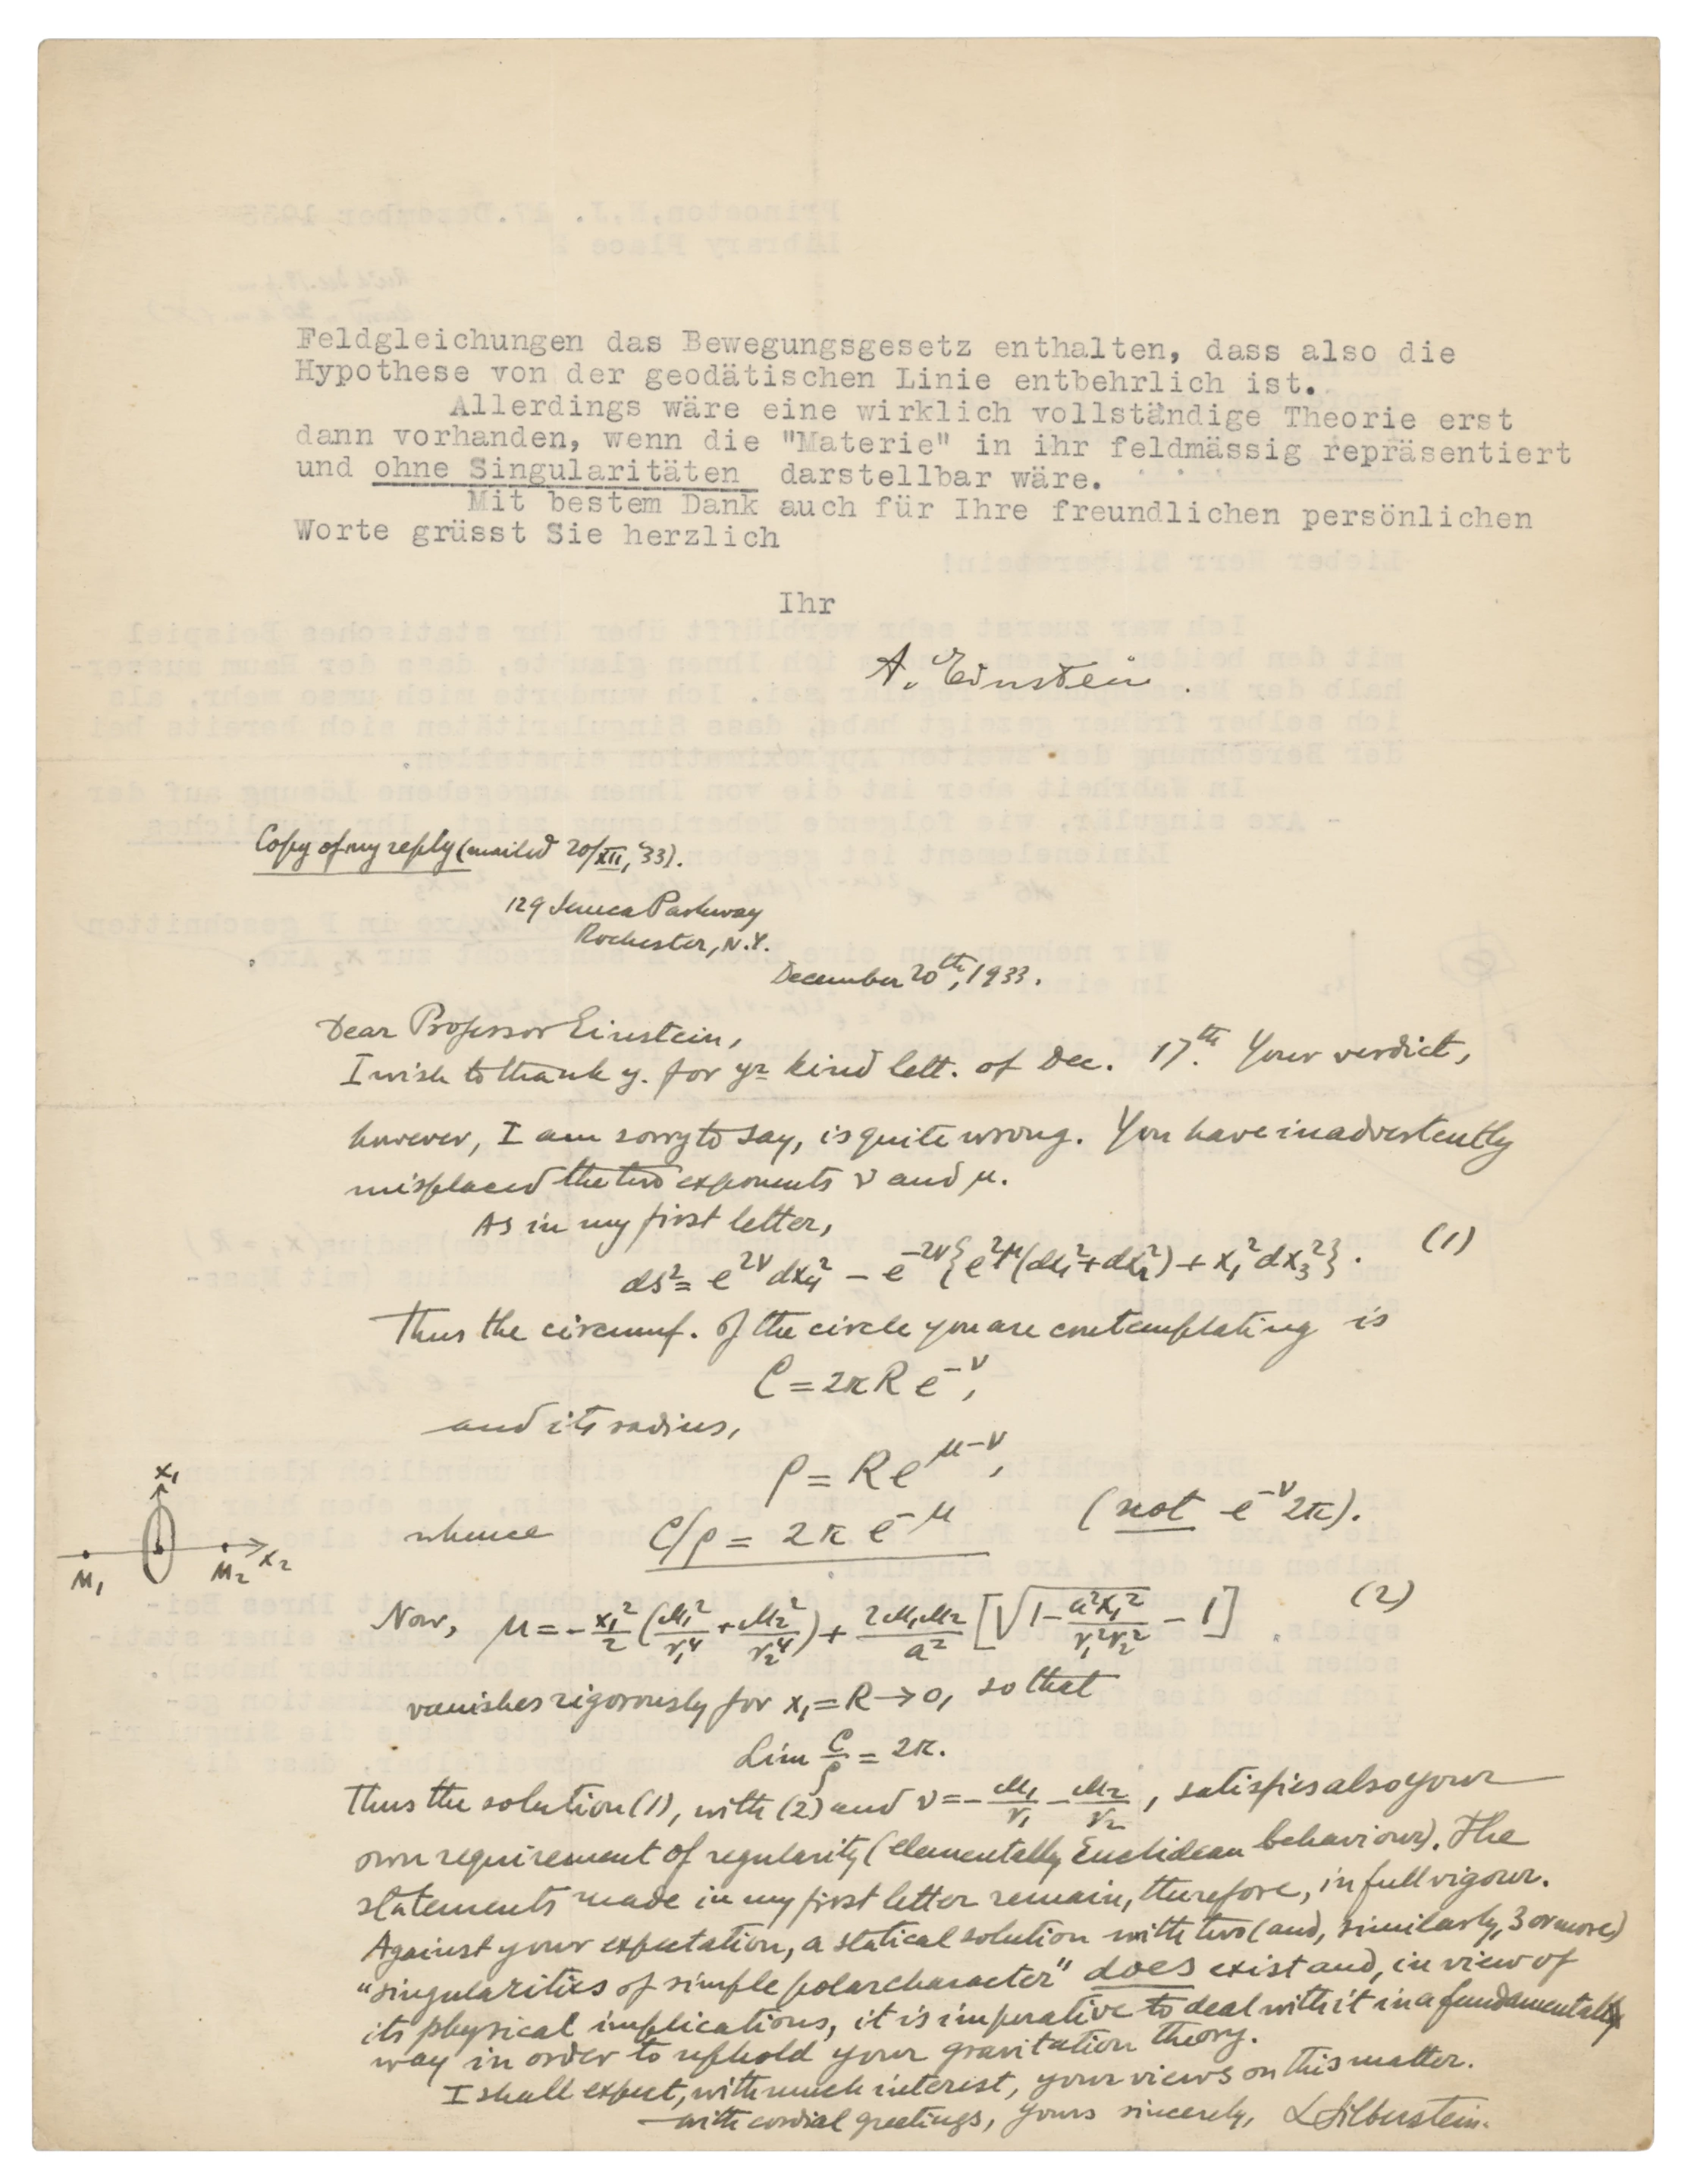 Feldgleichungen das Bewegungsgesetz enthalten, dass also die
Hypothese von der geodätischen Linie entbehrlich ist.
Allerdings wäre eine wirklich vollständige Theorie erst
dann vorhanden, wenn die "Materie" in ihr feldmässig repräsentiert
und ohne Singularitäten darstellbar wäre.
Mit bestem Dank auch für Ihre freundlichen persönlichen
Worte grüsst Sie herzlich
Ihr
A. Einstein.
Copy of my reply (mailed 20/XII, '33).
129 Seneca Parkway
Rochester, N.Y.
December 20th, 1933.
Dear Professor Einstein,
I wish to thank y. for yr kind lett. of Dec. 17th. Your verdict,
however, I am sorry to say, is quite wrong. You have inadvertently
misplaced the two exponents ν and μ.
As in my first letter,
ds² = e^{2ν} dx₄² − e^{−2ν}{e^{2μ}(dx₁² + dx₂²) + x₁² dx₃²}. (1)
Thus the circumf. of the circle you are contemplating is
C = 2πR e^{−ν},
and its radius,
ρ = R e^{μ−ν},
whence C/ρ = 2π e^{−μ} (not e^{−ν} 2π).
x₁
M₁ M₂ x₂
Now, μ = − x₁²/2 (M₁²/r₁⁴ + M₂²/r₂⁴) + 2M₁M₂/a² [√(1 − a²x₁²/r₁²r₂²) − 1] (2)
vanishes rigorously for x₁ = R → 0, so that
Lim C/ρ = 2π.
Thus the solution (1), with (2) and ν = − M₁/r₁ − M₂/r₂, satisfies also your
own requirement of regularity (elementally Euclidean behaviour). The
statements made in my first letter remain, therefore, in full vigour.
Against your expectation, a statical solution with two (and, similarly, 3 or more)
"singularities of simple polar character" does exist and, in view of
its physical implications, it is imperative to deal with it in a fundamental
way in order to uphold your gravitation theory.
I shall expect, with much interest, your views on this matter.
with cordial greetings, yours sincerely, L Silberstein.